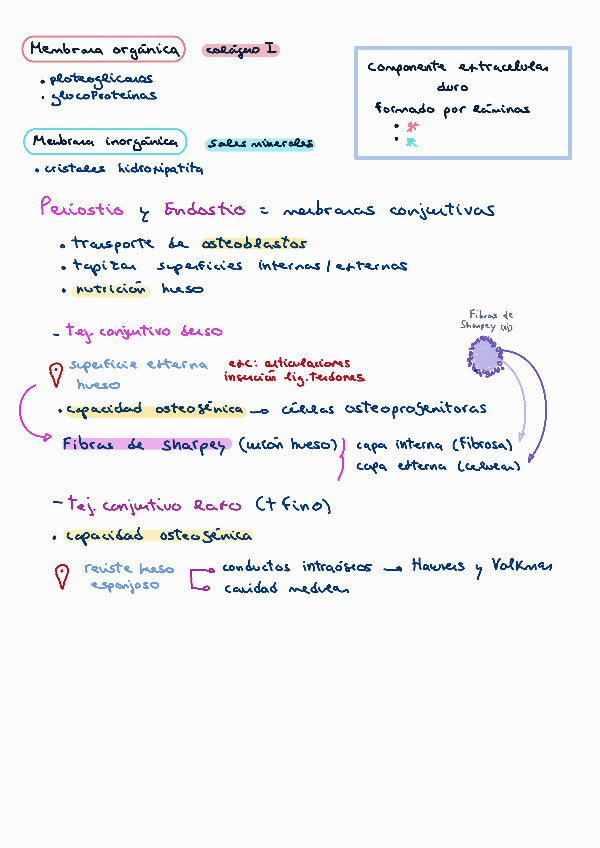 Membrana orgánica colágeno I
• proteoglicanos
• glucoproteínas
Componente extracelular
duro
formado por láminas
• *
• *
Membrana inorgánica sales minerales
• cristales hidroxipatita
Periostio y Endostio = membranas conjuntivas
• transporte de osteoblastos
• tapizar superficies internas/externas
• nutrición hueso
Fibras de
Sharpey
- Tej. conjuntivo denso
superficie externa
hueso
exc: articulaciones
inserción lig. tendones
• capacidad osteogénica → células osteoprogenitoras
Fibras de Sharpey (unión hueso)
capa interna (fibrosa)
capa externa (celular)
- Tej. conjuntivo laxo (+ fino)
• capacidad osteogénica
reviste hueso
esponjoso
conductos intraóseos → Havers y Volkman
cavidad medular